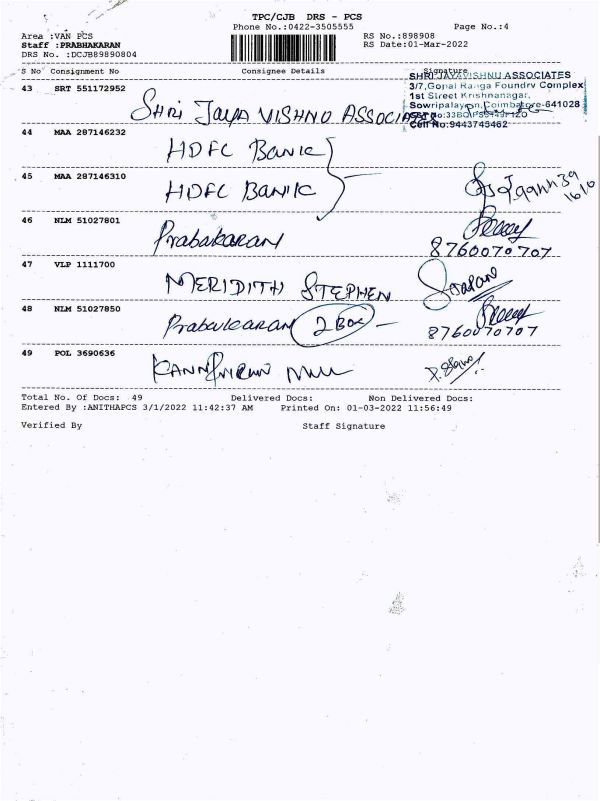 TPC/CJB DRS - PCS
Phone No.:0422-3505555 Page No.:4
Area :VAN PCS RS No.:898908
Staff :PRABHAKARAN RS Date:01-Mar-2022
DRS No. :DCJB89890804
S No Consignment No Consignee Details Signature
SHRI JAYAVISHNU ASSOCIATES
43 SRT 551172952 3/7,Gopal Ranga Foundry Complex
1st Street Krishnanagar,
Sowripalayam,Coimbatore-641028
SHRI JAYA VISHNU ASSOCIATES
Cell No:9443745462
44 MAA 287146232 HDFC Bank
45 MAA 287146310 HDFC BANK
46 NLM 51027801 Prabakaran
8760070707
47 VLP 1111700 MERIDITH STEPHEN
48 NLM 51027850 Prabakaran 2 Box
8760070707
49 POL 3690636
Total No. Of Docs: 49 Delivered Docs: Non Delivered Docs:
Entered By :ANITHAPCS 3/1/2022 11:42:37 AM Printed On: 01-03-2022 11:56:49
Verified By Staff Signature